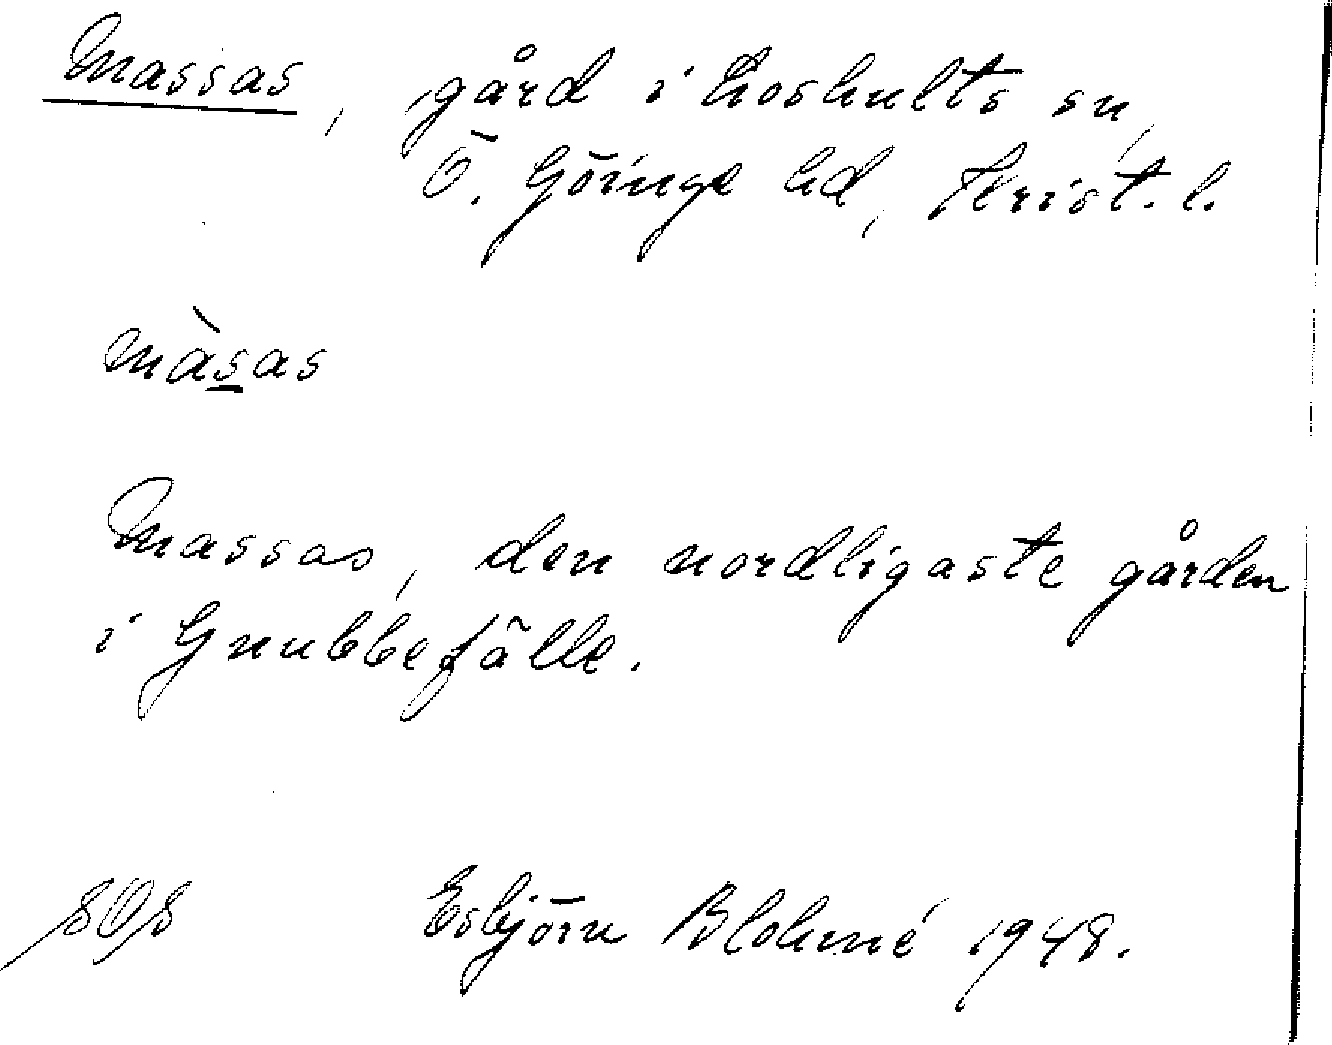 Massas, gård i Loshults sn,
Ö. Göinge hd, Krist. l.
màsas
Massas, den nordligaste gården
i Gnubbefälle.
Esbjörn Blohmé 1948.